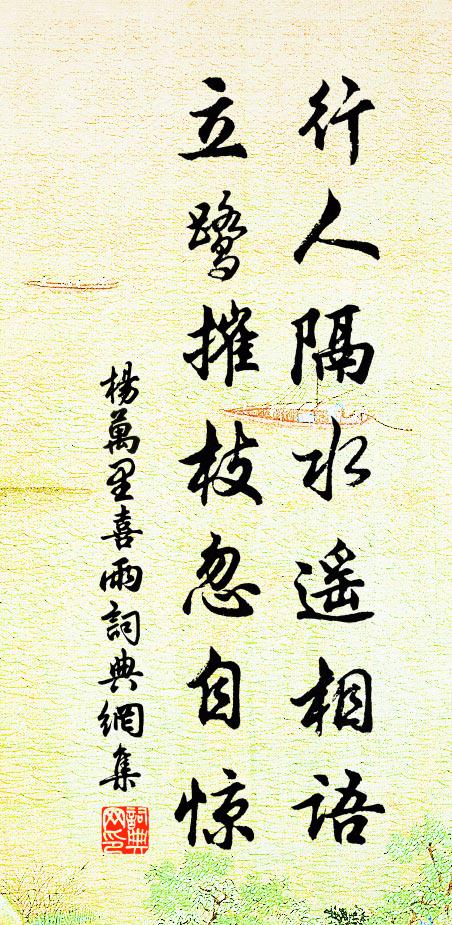 行人隔水遥相语
立鹭摧枝忽自惊
楊萬里喜雨詞典網集
詞典网印